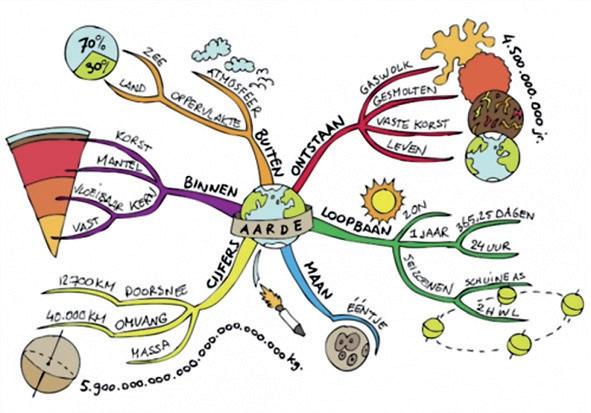 AARDE
BUITEN
ATMOSFEER
OPPERVLAKTE
ZEE
LAND
70%
30%
ONTSTAAN
GASWOLK
GESMOLTEN
VASTE KORST
LEVEN
4.500.000.000 jr.
LOOPBAAN
ZON
1 JAAR
365,25 DAGEN
24 UUR
SEIZOENEN
SCHUINE AS
2 H W L
MAAN
ÉÉNTJE
CIJFERS
DOORSNEE
12.700 KM
OMVANG
40.000 KM
MASSA
5.900.000.000.000.000.000.000.000 kg.
BINNEN
KORST
MANTEL
KERN
VLOEIBAAR
VAST